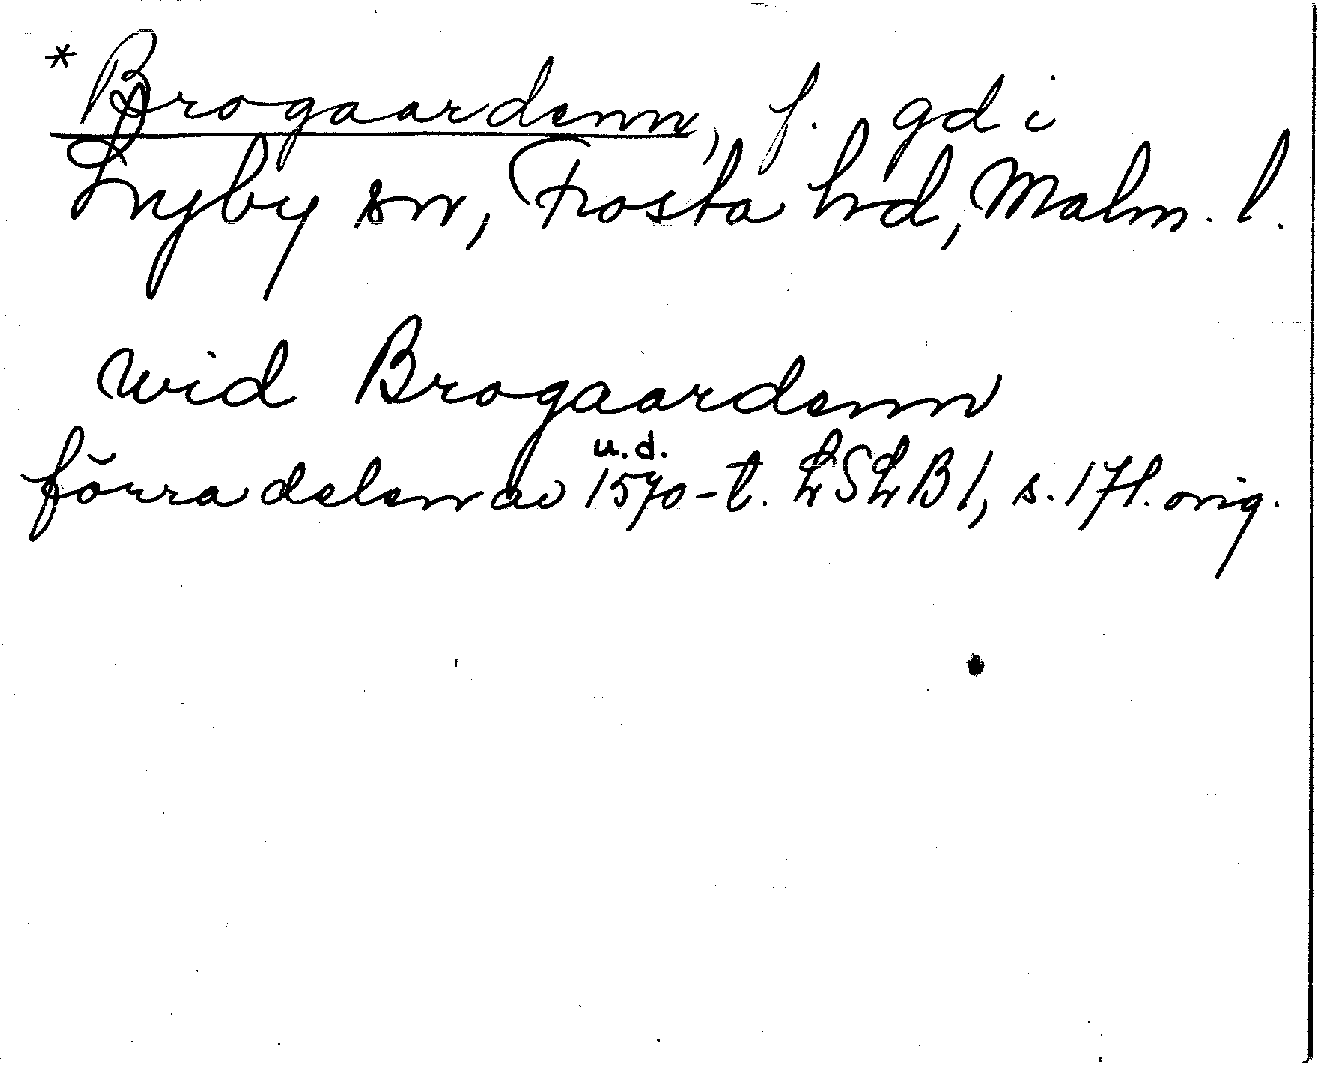 *Brogaardenn, f. gd i
Lyby sn, Frosta hd, Malm. l.
wid Brogaardenn
u.d.
förra delen av 1570-t. LSLB 1, s. 171. orig.